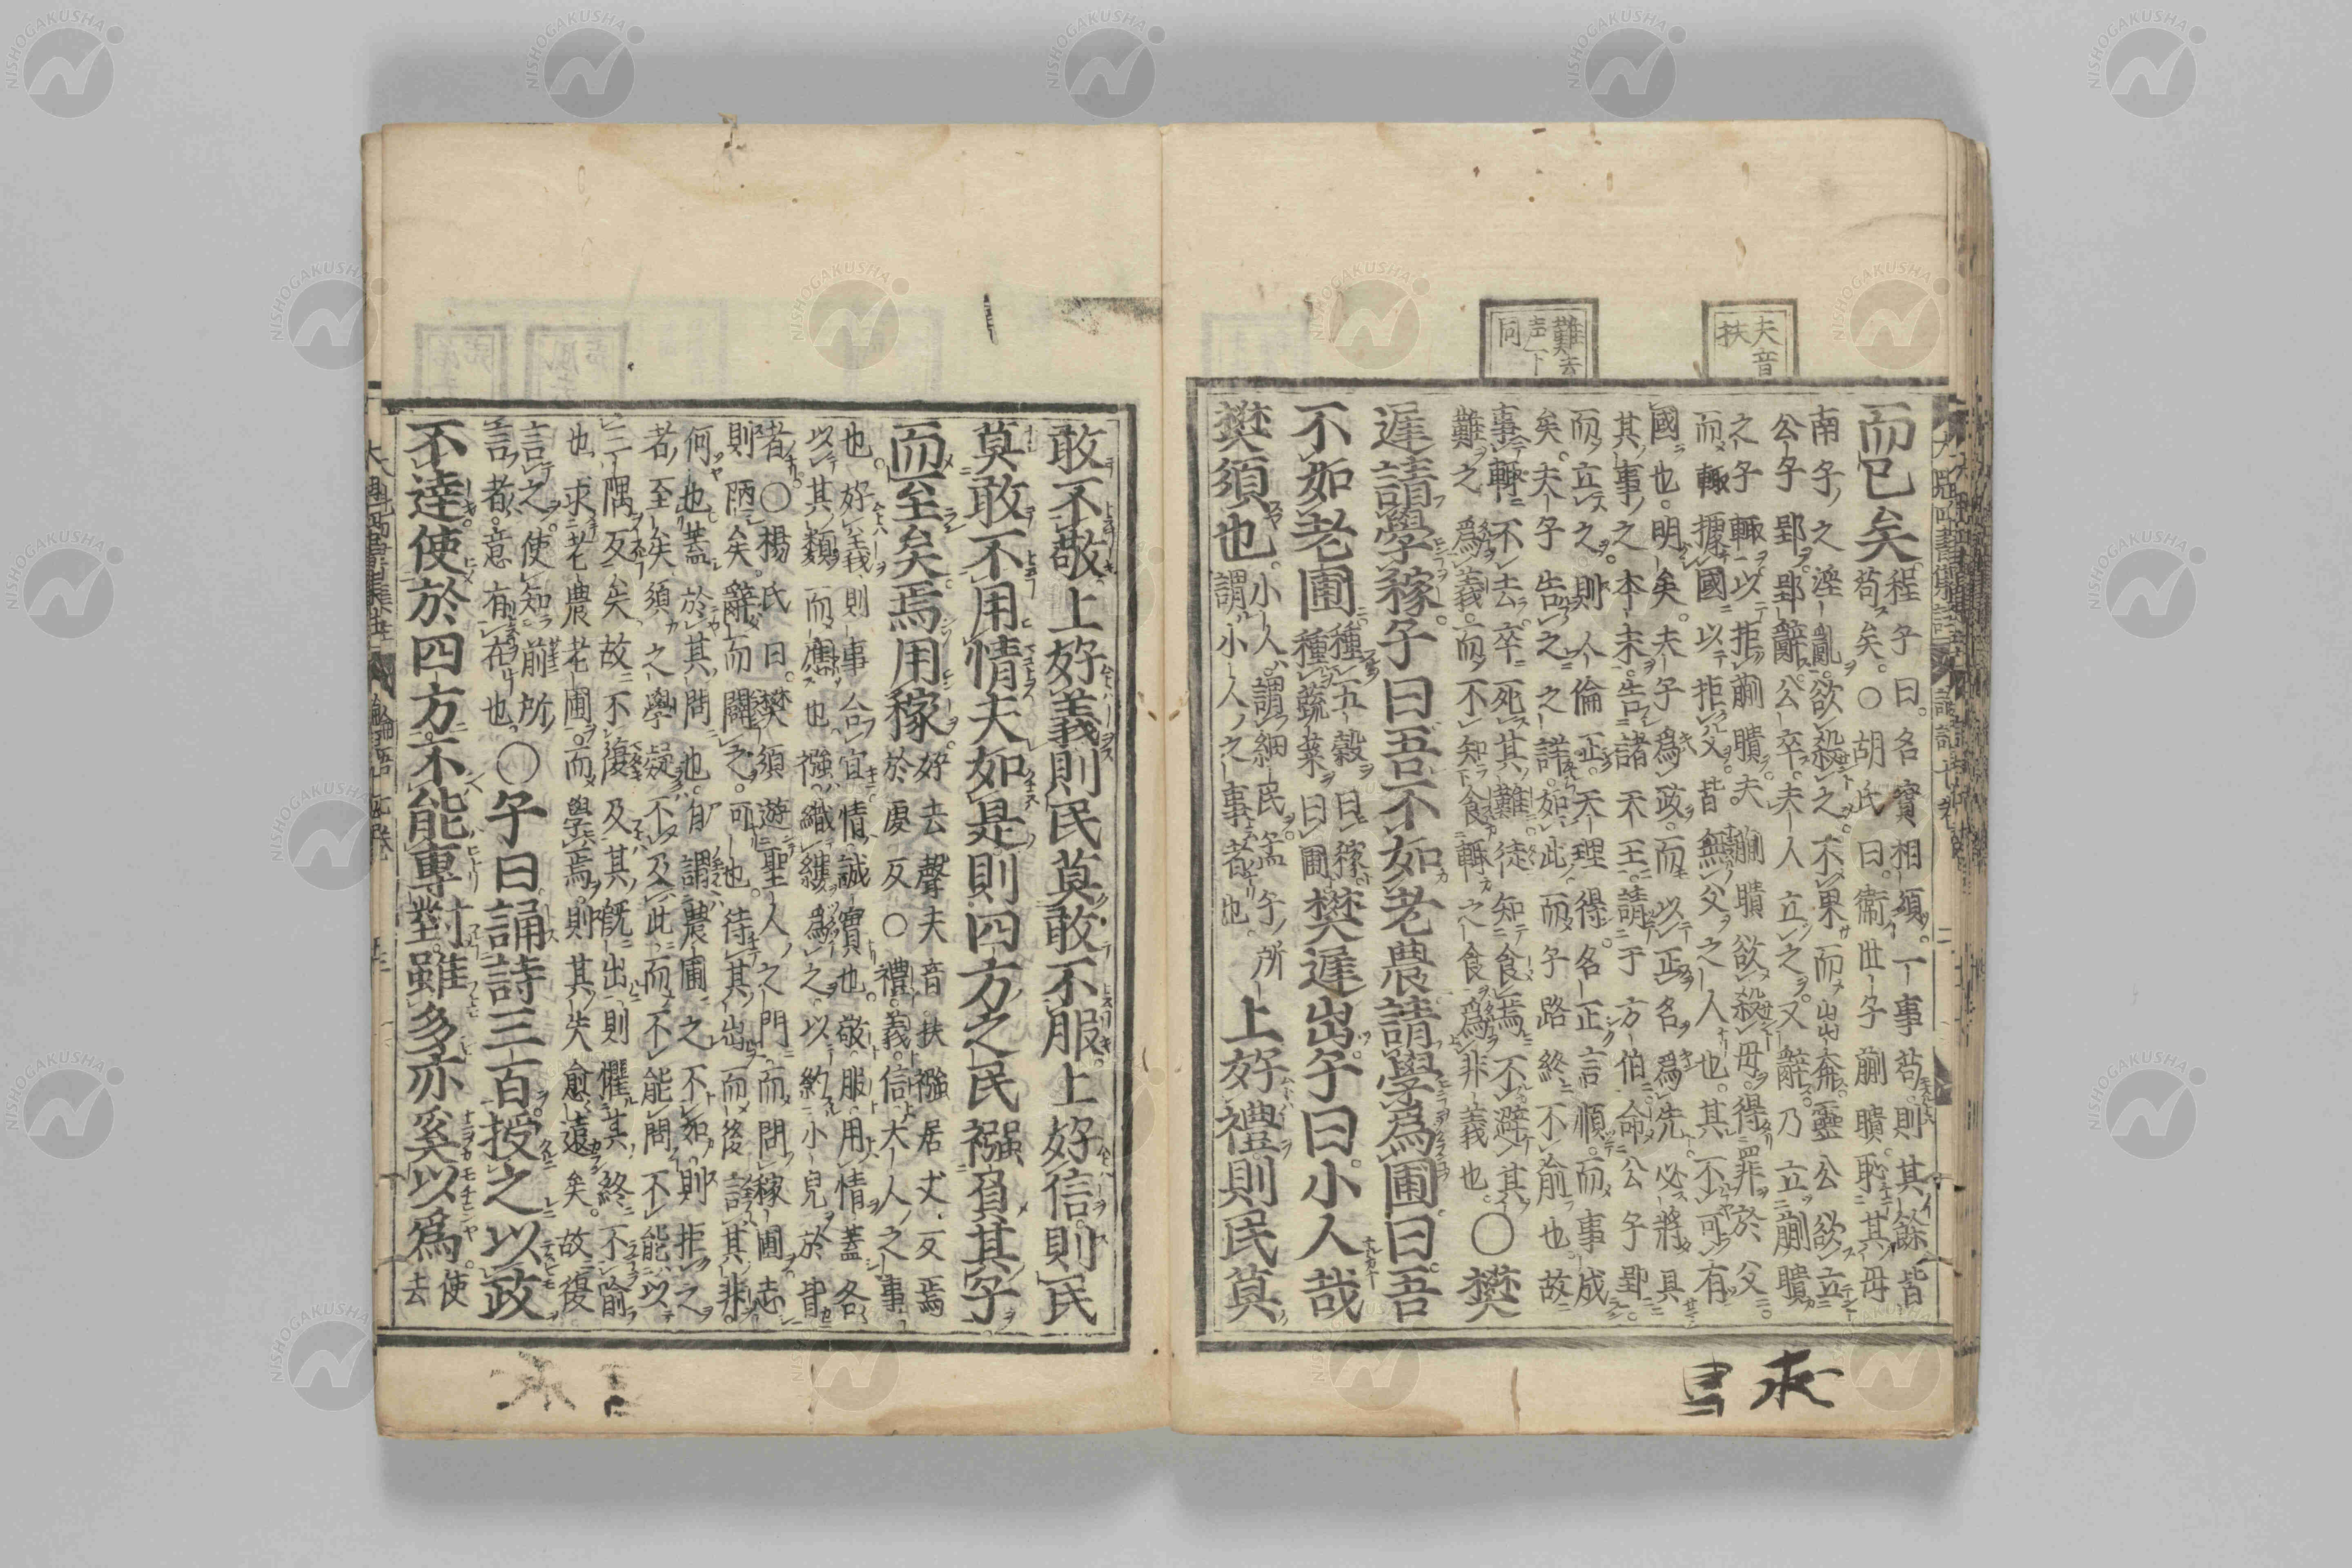 夫音
扶
難去
声下
同
而已矣。
程子曰。名實相須。一事苟。則其餘皆
苟矣。○胡氏曰。衞世子蒯聵。恥其母
南子之淫亂。欲殺之不果而出奔。靈公欲立
公子郢。郢辭。公卒。夫人立之。又辭。乃立蒯聵
之子輒。以拒蒯聵。夫蒯聵欲殺母。得罪於父。
而輒據國以拒父。皆無父之人也。其不可有
國也。明矣。夫子爲政。而以正名爲先。必將具
其事之本末。告諸天王。請于方伯。命公子郢。
而立之。則人倫正。天理得。名正言順。而事成
矣。夫子告之之詳。如此而子路終不喻也。故
事輒不去。卒死其難。徒知食焉不避其
難之爲義。而不知食輒之食爲非義也。○樊
遲請學稼。子曰吾不如老農請學爲圃。曰。吾
不如老圃。
種五穀。曰稼。
種蔬菜曰圃
樊遲出。子曰。小人哉
樊須也。
小人。謂細民。孟子所
謂小人之事者也。
上好禮則民莫
敢不敬。上好義則民莫敢不服上好信。則民
莫敢不用情夫如是則四方之民襁負其子
而至矣焉用稼。
好去聲夫音扶襁居丈反焉
於虔反○禮。義。信。大人之事
也。好義。則事合宜。情。誠實也。敬。服。用情。蓋各
以其類而應也。襁。織縷爲之。以約小兒於背
者。○楊氏曰。樊須遊聖人之門。而問稼圃志
則陋矣。辭而闢之。可也。待其出而後言其非。
何也。蓋於其問也。自謂農圃之不如。則拒之
者至矣。須之學疑不及此。而不能問。不能以
三隅反矣。故不復及其既出則懼其終不喻
也。求老農老圃。而學焉。則其失愈遠矣。故復
言之。使知前所
言者。意有在也。
○子曰。誦詩三百授之以政
不達。使於四方。不能專對。雖多亦奚以爲。
使
去